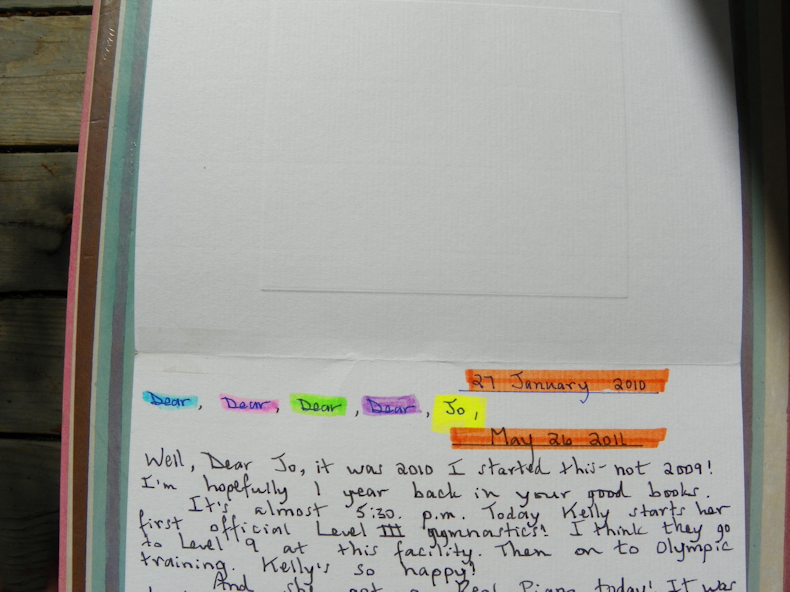 27 January 2010
Dear, Dear, Dear, Dear, Jo,
May 26 2011
Well, Dear Jo, it was 2010 I started this - not 2009!
I'm hopefully 1 year back in your good books.
It's almost 5:30. p.m. Today Kelly starts her
first official Level III gymnastics! I think they go
to Level 9 at this facility. Then on to Olympic
training. Kelly's so happy!
And she got a Real Piano today! It was